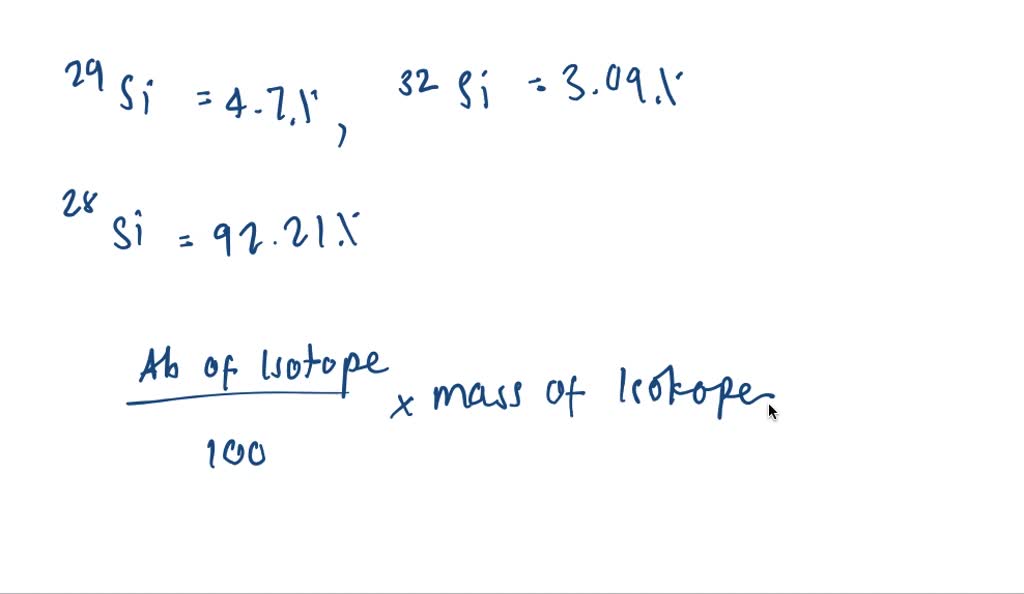 ²⁹Si = 4.7%, ³²Si = 3.09%
²⁸Si = 92.21%
Ab of Isotope
× mass of Isotope
100